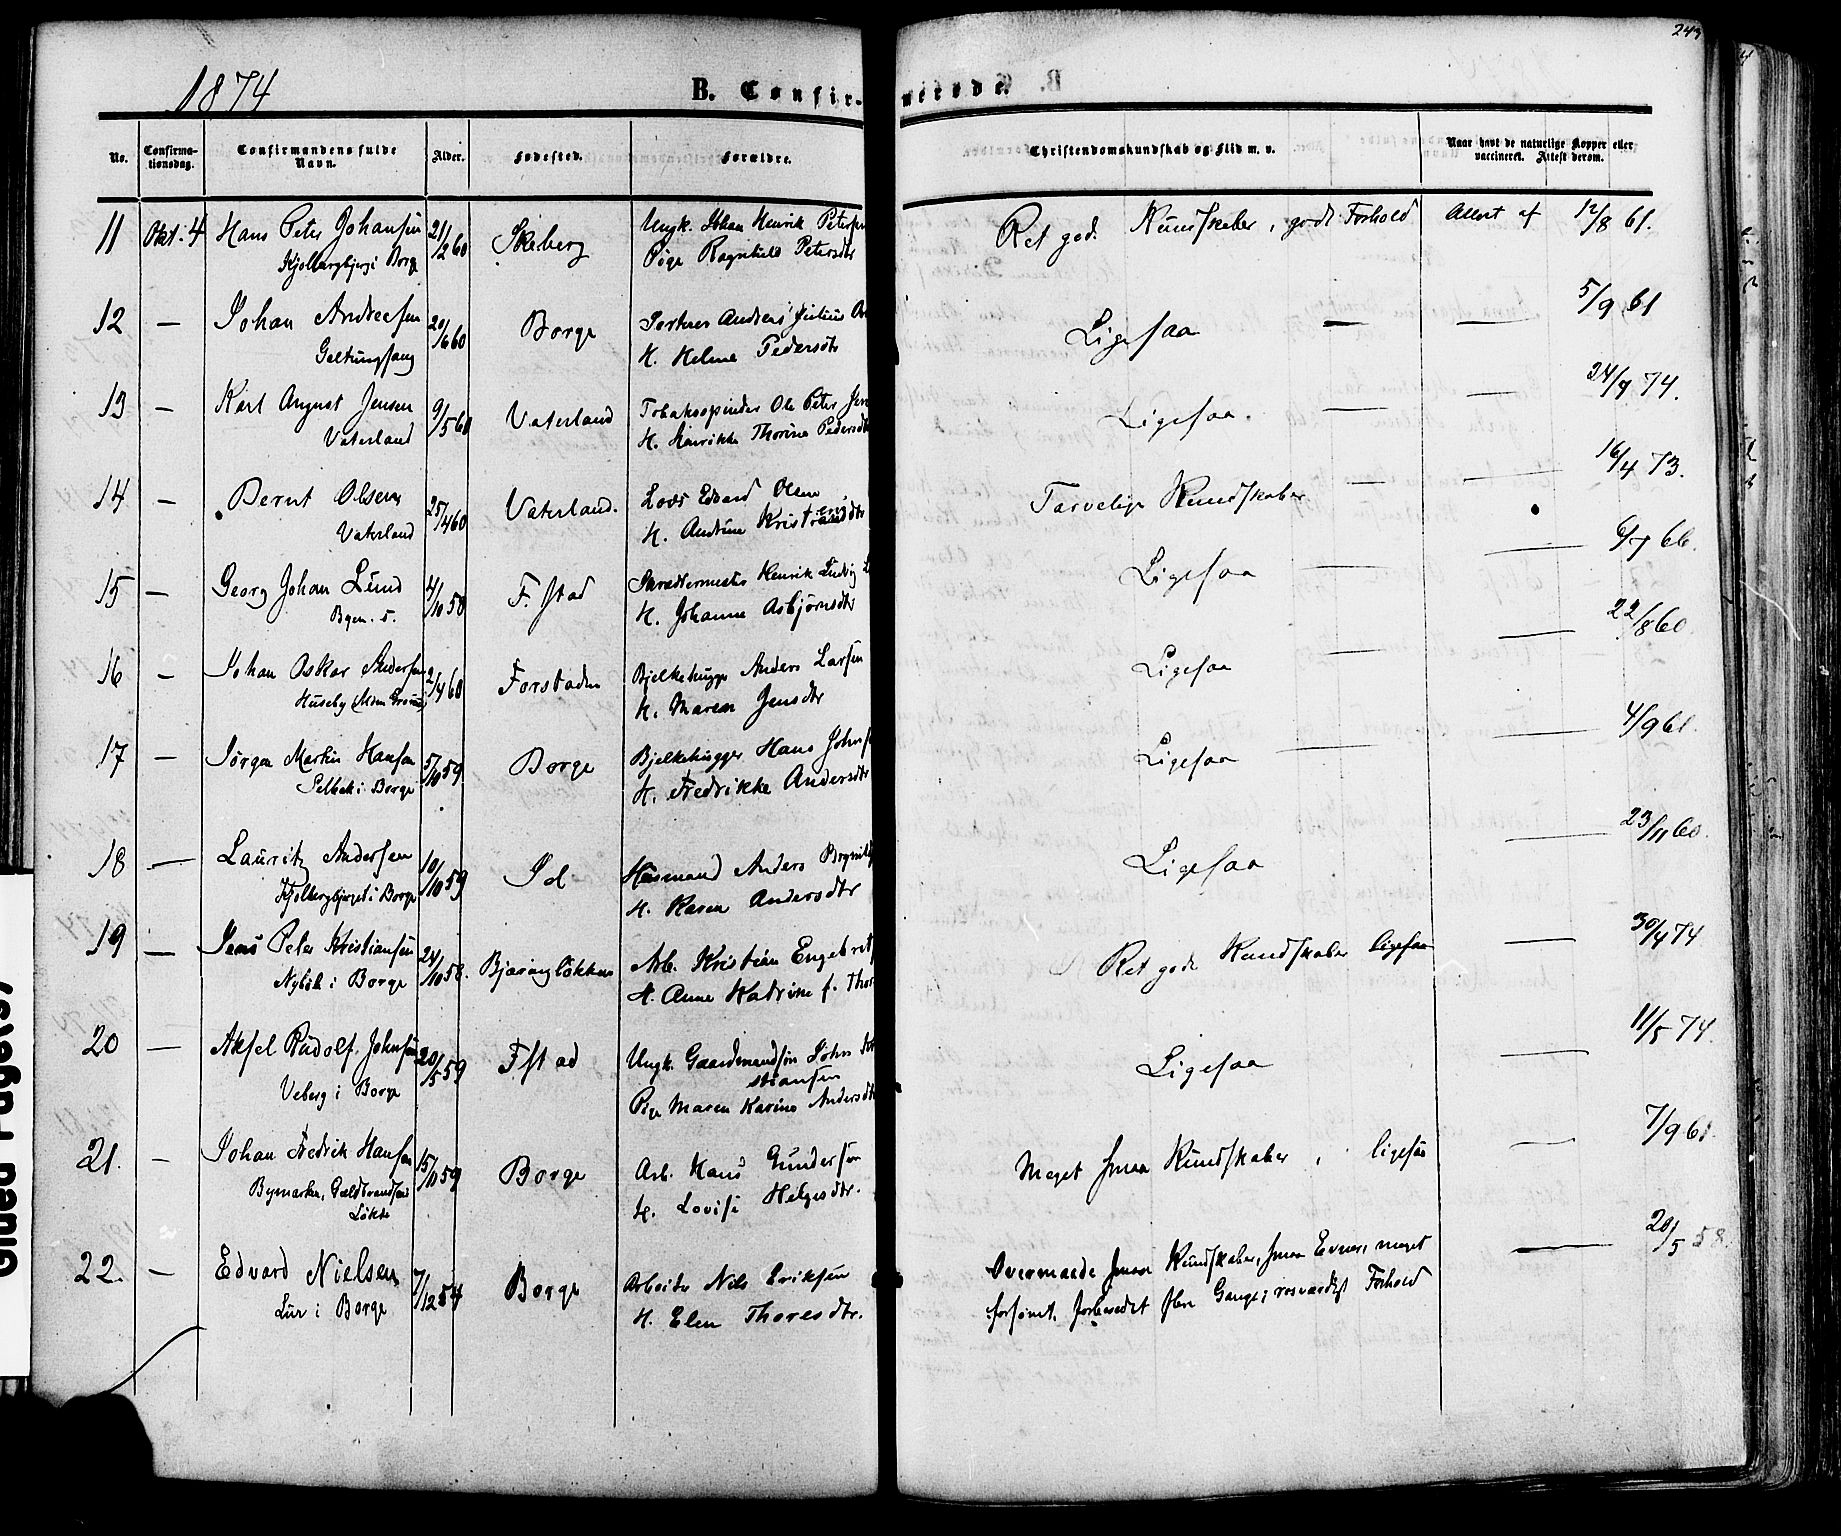 243
1874
B. Confir-
merede.
No.
Confirma-
tionsdag.
Confirmandens fulde
Navn.
Alder.
Fødested.
Forældre.
Christendomskundskab og Flid m. v.
Naar havt de naturlige Kopper eller
vaccineret. Attest derom.
11 Okt: 4 Hans Peter Johansen 21/2 60 Skeberg Ungk. Johan Henrik Petersen Ret gode Kundskaber, godt Forhold Attest af 12/8 61.
Kjølbergbjerg i Borge Pige Ragnhild Petersdtr
12 — Johan Andresen 20/6 60 Borge Andreas Julius Ligesaa — — 5/9 61
H. Helene Pedersdtr
13 — Karl August Jensen 9/5 60 Vaterland Tobakspinder Ole Peter Ligesaa. — — 24/4 74.
Vaterland H. Henrikke Thorine Pedersdtr
14 — Bernt Olsen 25/4 60 Vaterland. Lods Edvard Olsen Tarvelige Kundskaber — — 16/4 73.
Vaterland H.
15 — Georg Johan Lund 4/10 58 F. stad Henrik Ludvig Ligesaa — — 6/7 66.
H. Johanne Asbjørnsdtr
16 — Johan Oskar Andersen 2/4 60 Forstaden Bjelkehugger Anders Larsen Ligesaa — — 22/8 60.
Huseby H. Maren Jensdtr
17 — Jørgen Martin Hansen 5/10 59. Borge Bjelkehugger Hans Ligesaa — — 4/9 61.
Selbak i Borge H. Fredrikke Andersdtr
18 — Lauritz Andersen 10/10 59 Id Husmand Anders Ligesaa — 23/11 60.
Kjølbergbjerget i Borge H. Karen Andersdtr
19 — Jens Peter Kristiansen 24/10 58. Arb. Kristian Ret gode Kundskaber ligesaa — 30/4 74
i Borge H. Anne Katrine f.
20 — Aksel Rudolf Johnsen 20/5 59 Fstad Ungk. Gaardmandsøn John Ligesaa — 11/5 74.
Veberg i Borge stiansen
Pige Maren Karine Andersdtr
21. — Johan Fredrik Hansen 15/ 59 Borge Arb. Hans Gundersen Meget smaa Kundskaber, ligesaa — 7/9 61.
Bymarken, H. Lovise Helgesdtr.
Løkke
22. — Edvard Nielsen 7/12 54 Borge Arbeider Nils Eriksen Overmaade smaa Kundskaber, smaa Evner, meget — 20/5 58.
Lur i Borge H. Elen Thoresdtr. forsømt, forberedet flere Gange; rosværdigt Forhold